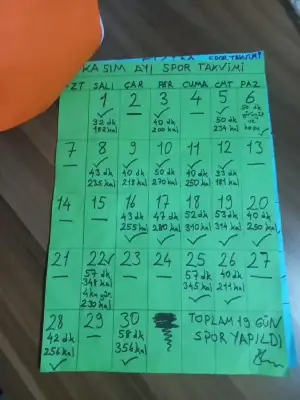 SPOR TAKVİMİ
KASIM AYI SPOR TAKVİMİ
ZT SALI ÇAR PER CUMA CMT PAZ
1 2 3 4 5 6
32 dk 40 dk 50 dk 50 dk
182 kal 200 kal 234 kal
7 8 9 10 11 12 13
43 dk 40 dk 50 dk 40 dk 33 dk
235 kal 218 kal 270 kal 250 kal 181 kal
14 15 16 17 18 19 20
43 dk 47 dk 52 dk 53 dk 40 dk
255 kal 280 kal 310 kal 314 kal 250 kal
21 22 23 24 25 26 27
57 dk 57 dk 40 dk
348 kal 345 kal 211 kal
4 km yür.
230 kal
28 29 30 TOPLAM 19 GÜN
42 dk 58 dk SPOR YAPILDI
256 kal 356 kal